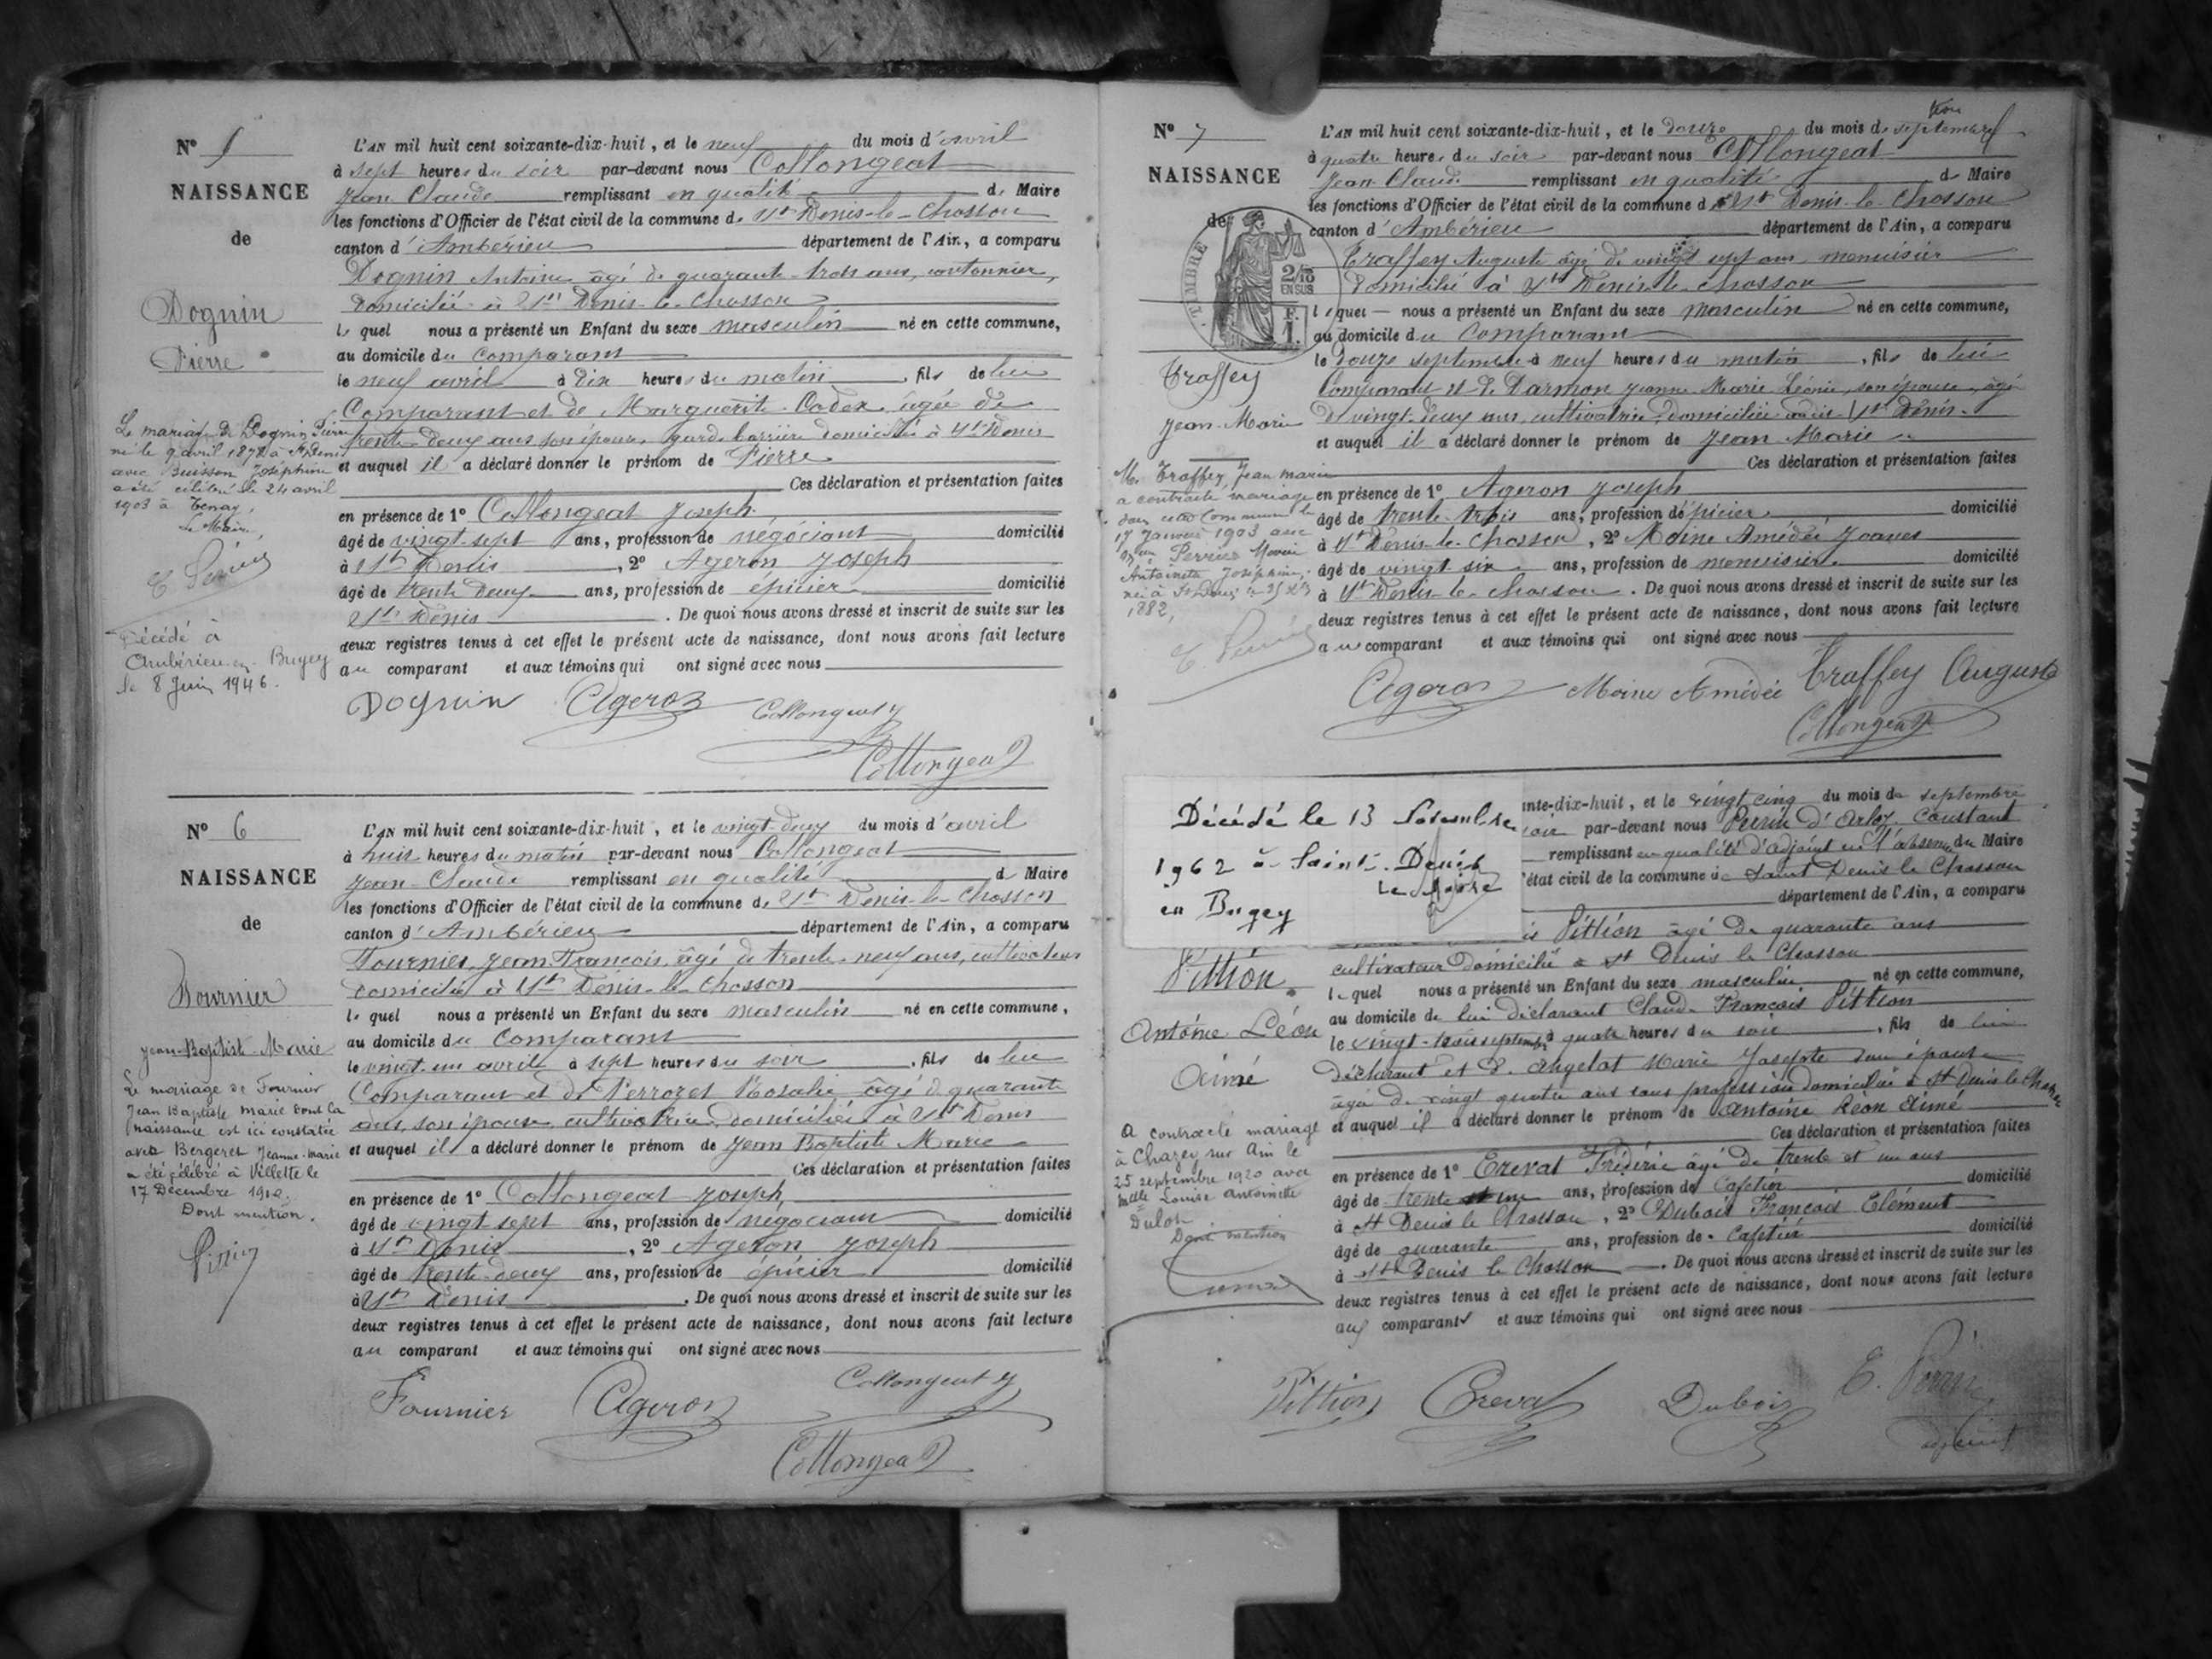 N° 5
NAISSANCE
de
Dognin
Pierre
Le mariage de Dognin Pierre
né le 9 avril 1878 à St Denis
avec Buisson Joséphine
a été célébré le 24 avril
1903 à Tenay,
Le Maire,
Décédé à
Ambérieu-en-Bugey
le 8 Juin 1946.
L'AN mil huit cent soixante-dix-huit, et le neuf du mois d'avril
à sept heures du soir par-devant nous Collongeat
Jean Claude remplissant en qualité de Maire
les fonctions d'Officier de l'état civil de la commune de St Denis-le-Chosson
canton d'Ambérieu département de l'Ain, a comparu
Dognin Antoine âgé de quarante-trois ans, cantonnier,
domicilié à St Denis-le-Chosson
lequel nous a présenté un Enfant du sexe masculin né en cette commune,
au domicile du comparant
le neuf avril à dix heures du matin, fils de lui
Comparant et de Marguerite Codex âgée de
trente-deux ans son épouse, garde barrière domiciliée à St Denis
et auquel il a déclaré donner le prénom de Pierre
Ces déclaration et présentation faites
en présence de 1° Collongeat Joseph
âgé de vingt-sept ans, profession de négociant domicilié
à St Denis, 2° Ageron Joseph
âgé de trente deux ans, profession de épicier domicilié
St Denis. De quoi nous avons dressé et inscrit de suite sur les
deux registres tenus à cet effet le présent acte de naissance, dont nous avons fait lecture
au comparant et aux témoins qui ont signé avec nous
Dognin Ageron Collongeat J
Collongeat
N° 6
NAISSANCE
de
Fournier
Jean-Baptiste-Marie
Le mariage de Fournier
Jean Baptiste Marie dont la
naissance est ici constatée
avec Bergeret Jeanne-Marie
a été célébré à Villette le
17 Décembre 1910.
Dont mention.
L'AN mil huit cent soixante-dix-huit, et le vingt-deux du mois d'avril
à huit heures du matin par-devant nous Collongeat
Jean-Claude remplissant en qualité de Maire
les fonctions d'Officier de l'état civil de la commune de St Denis-le-Chosson
canton d'Ambérieu département de l'Ain, a comparu
Fournier Jean François, âgé de trente-neuf ans, cultivateur
domicilié à St Denis-le-Chosson
lequel nous a présenté un Enfant du sexe masculin né en cette commune,
au domicile du Comparant
le vingt-un avril à sept heures du soir, fils de lui
Comparant et de Perrozet Rosalie âgée de quarante
ans, son épouse cultivatrice domiciliée à St Denis
et auquel il a déclaré donner le prénom de Jean Baptiste Marie
Ces déclaration et présentation faites
en présence de 1° Collongeat Joseph
âgé de vingt sept ans, profession de négociant domicilié
à St Denis, 2° Ageron Joseph
âgé de trente-deux ans, profession de épicier domicilié
à St Denis. De quoi nous avons dressé et inscrit de suite sur les
deux registres tenus à cet effet le présent acte de naissance, dont nous avons fait lecture
au comparant et aux témoins qui ont signé avec nous
Fournier Ageron Collongeat J
Collongeat
N° 7
NAISSANCE
de
TIMBRE
2/10
EN SUS
F.
1.
Traffey
Jean-Marie
M. Traffey, Jean Marie
a contracté mariage
dans cette Commune le
17 Janvier 1903 avec
Perrin Marie
Antoinette Joséphine,
née à St Denis le 25
1882,
L'AN mil huit cent soixante-dix-huit, et le douze du mois de septembre
à quatre heures du soir par-devant nous Collongeat
Jean-Claude remplissant en qualité de Maire
les fonctions d'Officier de l'état civil de la commune de St Denis-le-Chosson
canton d'Ambérieu département de l'Ain, a comparu
Traffey Auguste âgé de vingt sept ans menuisier
domicilié à St Denis-le-Chosson
lequel nous a présenté un Enfant du sexe masculin né en cette commune,
au domicile du Comparant
le douze septembre à neuf heures du matin, fils de lui
Comparant et de Darmon Jeanne Marie Léonie, son épouse, âgée
de vingt-deux ans, cultivatrice, domiciliée audit St Denis.
et auquel il a déclaré donner le prénom de Jean Marie
Ces déclaration et présentation faites
en présence de 1° Ageron Joseph
âgé de trente-trois ans, profession d'épicier domicilié
à St Denis-le-Chosson, 2° Moine Amédée Joanes
âgé de vingt six ans, profession de menuisier domicilié
à St Denis-le-Chosson. De quoi nous avons dressé et inscrit de suite sur les
deux registres tenus à cet effet le présent acte de naissance, dont nous avons fait lecture
au comparant et aux témoins qui ont signé avec nous
Ageron Moine Amédée Traffey Auguste
Collongeat
Décédé le 13 Novembre
1962 à Saint-Denis
en Bugey
Le Maire
Pittion
Antoine Léon
Aimé
A contracté mariage
à Chazey sur Ain le
25 septembre 1920 avec
Mlle Louise Antoinette
Dulon
Dont mention
nte-dix-huit, et le vingt cinq du mois de septembre
soir par-devant nous Perrin d'Arloz Constant
remplissant en qualité d'adjoint en l'absence du Maire
'état civil de la commune de Saint Denis le Chosson
département de l'Ain, a comparu
Pittion âgé de quarante ans
cultivateur domicilié à St Denis le Chosson
lequel nous a présenté un Enfant du sexe masculin né en cette commune,
au domicile de lui déclarant Claude François Pittion
le vingt-trois septembre à quatre heures du soir, fils de lui
déclarant et d'Angelot Marie Josephte son épouse
âgée de vingt quatre ans sans profession domiciliée à St Denis le Chosson
et auquel il a déclaré donner le prénom de Antoine Léon Aimé
Ces déclaration et présentation faites
en présence de 1° Creval Frédéric âgé de trente et un ans
âgé de trente et un ans, profession de Cafetier domicilié
à St Denis le Chosson, 2° Dubois François Clément
âgé de quarante ans, profession de Cafetier domicilié
à St Denis le Chosson. De quoi nous avons dressé et inscrit de suite sur les
deux registres tenus à cet effet le présent acte de naissance, dont nous avons fait lecture
aux comparant et aux témoins qui ont signé avec nous
Pittion Creval Dubois C. Perrin
adjoint